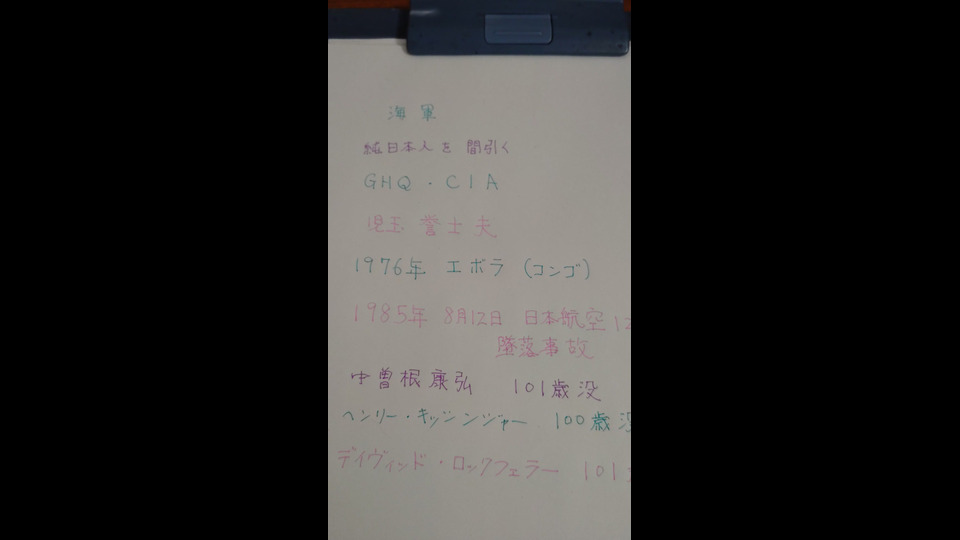 海軍
純日本人を間引く
GHQ・CIA
児玉誉士夫
1976年 エボラ (コンゴ)
1985年 8月12日 日本航空 12
墜落事故
中曽根康弘 101歳没
ヘンリー・キッシンジャー 100歳没
デイヴィッド・ロックフェラー 101